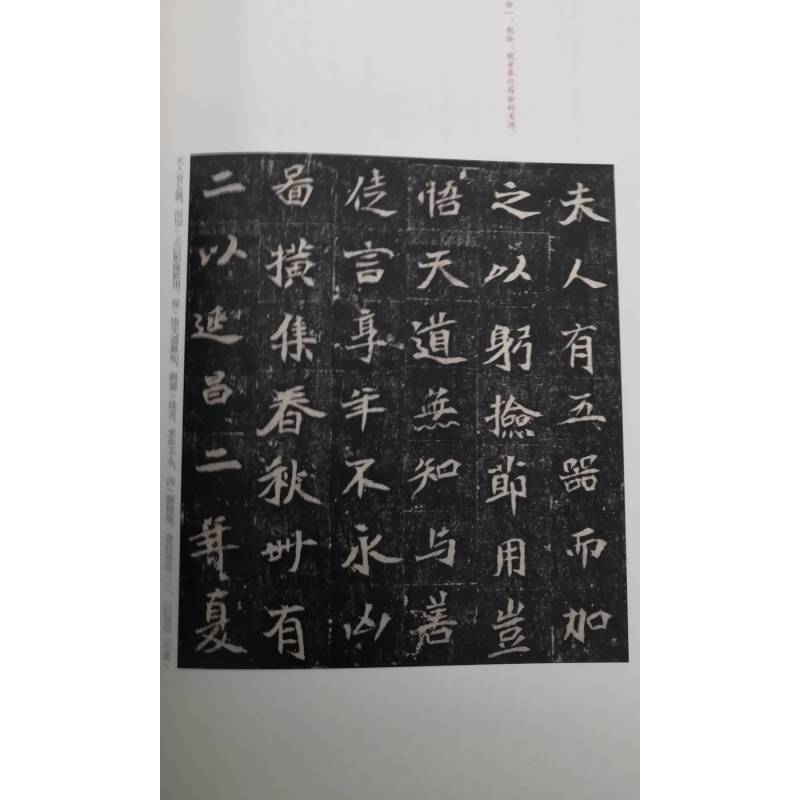 夫人有五器而加
之以躬撿節用豈
悟天道無知与善
徒言享年不永凶
啚撗集春秋卌有
二以延昌二年夏